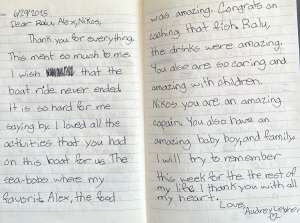 6/29/2015
Dear Ralu, Alex, Nikos,
Thank you for everything.
This ment so much to me.
I wish that the
boat ride never ended
It is so hard for me
saying by. I loved all the
activities that you had
on this boat for us. The
sea-bobs where my
favorite. Alex, the food
was amazing. Congrats on
cathing that fish. Ralu,
the drinks were amazing.
You also are so caring and
amazing with children.
Nikos you are an amazing
captain. You also have an
amazing baby boy, and family.
I will try to remember
this week for the the rest of
my life. I thank you with all
my heart.
Love,
Audrey